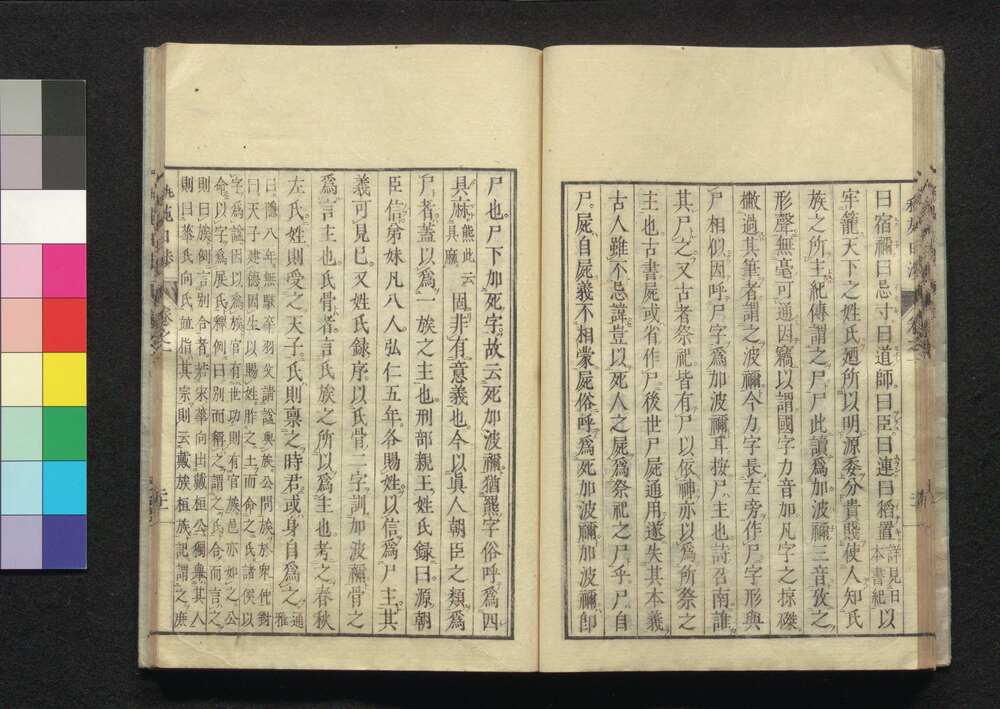 曰宿禰曰忌寸曰道師曰臣曰連曰稻置詳見日本書紀以
牢籠天下之姓氏廼所以明源委分貴賤使人知氏
族之所主紀傳謂之尸尸此讀爲加波禰三音攷之
形聲無毫可通因竊以謂國字力音加凡字之掠磔
橶過其筆者謂之波禰今力字長左旁作尸字形與
尸相似因呼尸字爲加波禰耳按尸主也詩召南誰
其尸之又古者祭祀皆有尸以依神亦以爲所祭之
主也古書屍或省作尸後世尸屍通用遂失其本義
古人雖不忌諱豈以死人之屍爲祭祀之尸乎尸自
尸屍自屍義不相蒙屍俗呼爲死加波禰加波禰卽
尸也尸下加死字故云死加波禰猶羆字俗呼爲四
具麻熊此云具麻固非有意義也今以眞人朝臣之類爲
尸者蓋以爲一族之主也刑部親王姓氏録曰源朝
臣信弟妹凡八人弘仁五年各賜姓以信爲尸主其
義可見已又姓氏録序以氏骨二字訓加波禰骨之
爲言主也氏骨者言氏族之所以爲主也考之春秋
左氏姓則受之天子氏則稟之時君或身自爲之通雅
曰隱八年無駭卒羽父請諡與族公問族於衆仲對
曰天子建德因生以賜姓胙之土而命之氏諸侯以
字爲諡因以爲族官有世功則有官族邑亦如之公
命以字爲展氏釋例曰別而稱之謂之氏合而言之
則曰族例言別合者若宋華向出戴桓公獨舉其人
則曰華氏向氏並指其宗則云戴族桓族記謂之庶